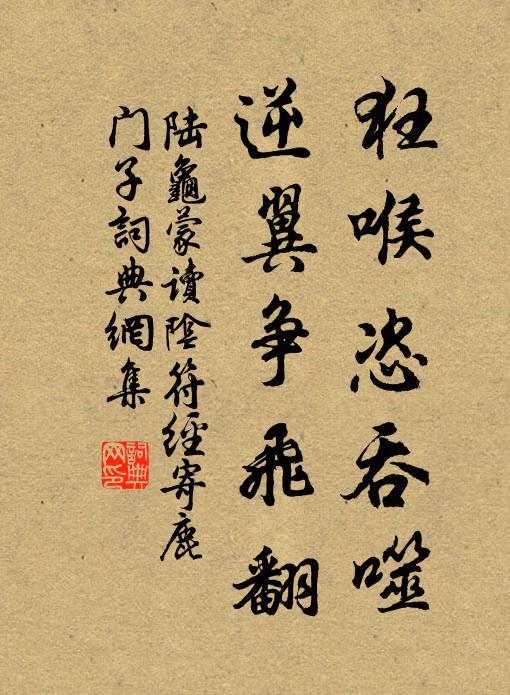 狂喉恣吞噬
逆翼争飛翻
陆龜蒙读陰符經寄鹿
门子詞典網集
詞典
网印